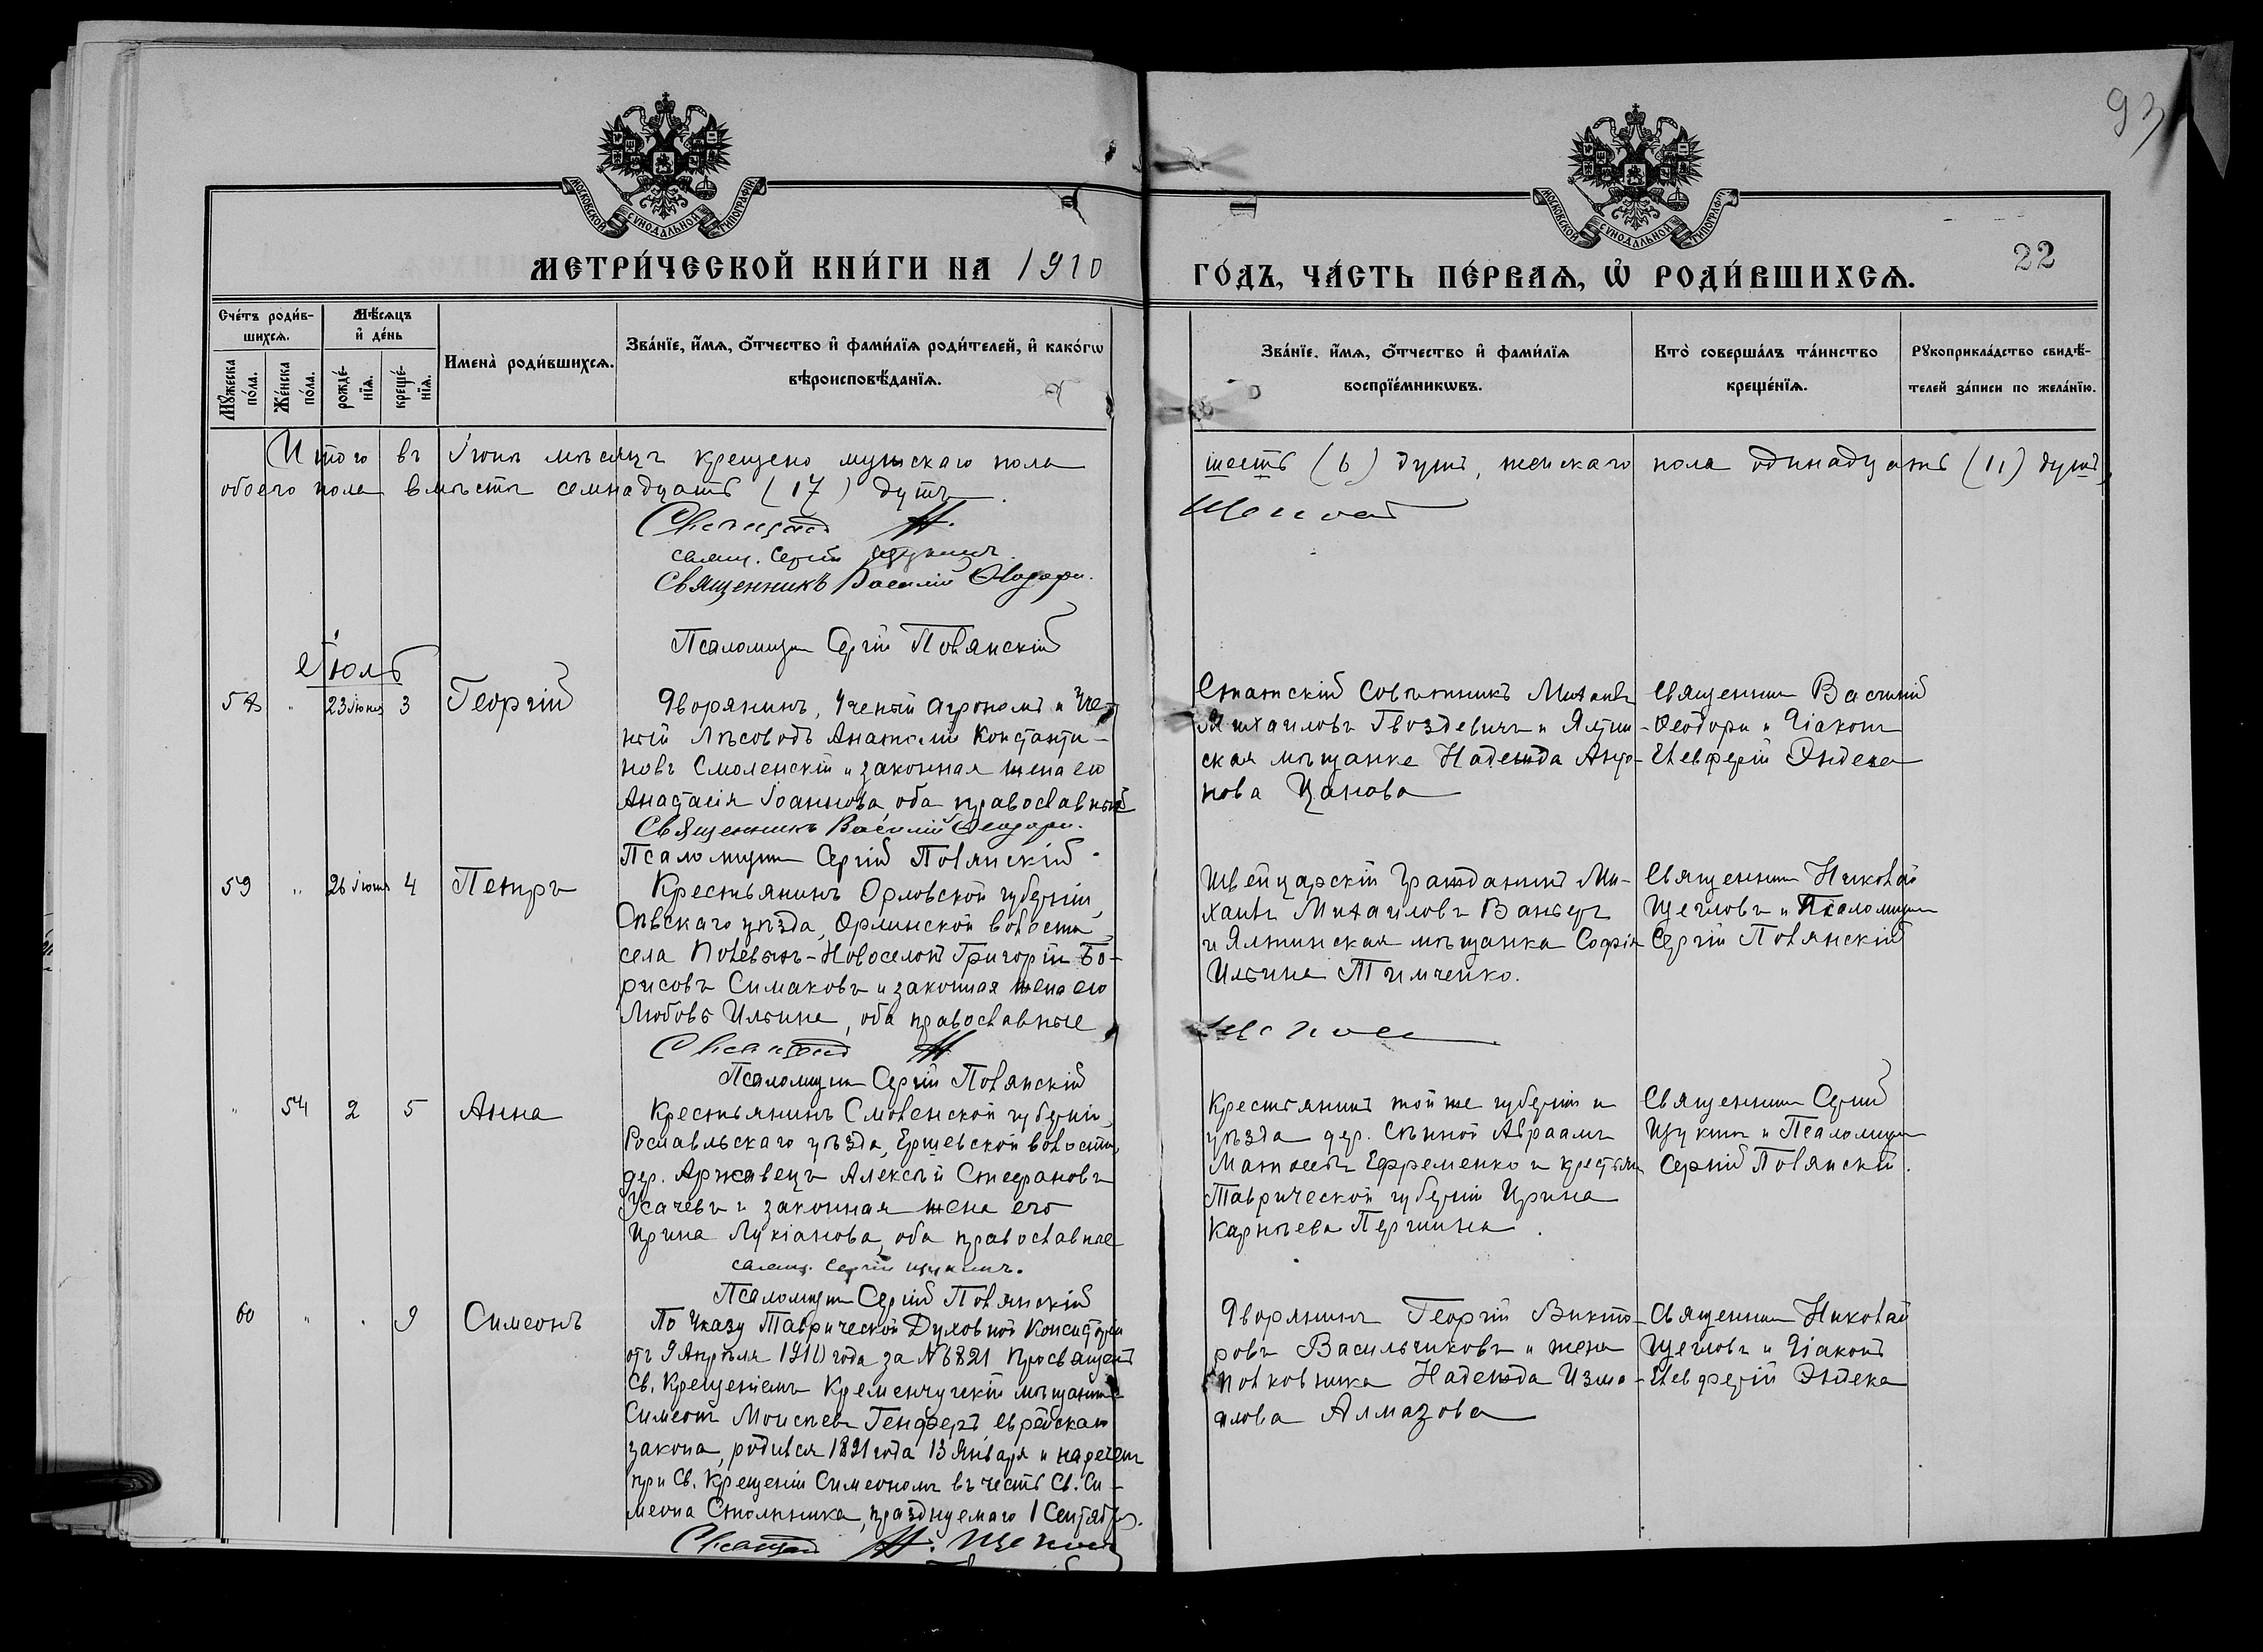 93
МОСКОВСКОЙ СУНОДАЛЬНОЙ ТИПОГРАФІИ
МОСКОВСКОЙ СУНОДАЛЬНОЙ ТИПОГРАФІИ
22
МЕТРИ́ЧЕСКОЙ КНИ́ГИ НА 1910
ГО́ДЪ, ЧА́СТЬ ПЕ́РВАѦ, Ѡ҆ РОДИ́ВШИХСѦ.
Сче́тъ роди́в-
шихсѧ.
Мꙋжеска по́ла.
Же́нска по́ла.
Мѣ́сѧцъ
и҆ де́нь
рожде́-
нїѧ.
креще́-
нїѧ.
Имена̀ роди́вшихсѧ.
Зва́нїе, и҆́мѧ, ѻ҆́тчество и҆ фами́лїѧ роди́телей, и҆ како́гѡ
вѣроисповѣ́данїѧ.
Зва́нїе, и҆́мѧ, ѻ҆́тчество и҆ фами́лїѧ
воспрїе́мникѡвъ.
Кто̀ соверша́лъ та́инство
креще́нїѧ.
Рꙋкоприкла́дство свидѣ́-
телей за́писи по жела́нїю.
Итого въ Іюнѣ мѣсяцѣ крещено мужскаго пола
обоего пола вмѣстѣ семнадцать (17) душъ.
шесть (6) душъ, женскаго пола одинадцать (11) душъ,
свящ. Сергій Щукинъ.
Священникъ Василій Ѳеодори.
Псаломщикъ Сергій Полянскій
Іюль
58 " 23 Іюня 3 Георгій
Дворянинъ, Ученый агрономъ и Уче-
ный Лѣсоводъ Анатолій Константи-
новъ Смоленскій и законная жена его
Анастасія Іоаннова, оба православные
Священникъ Василій Ѳеодори.
Псаломщикъ Сергій Полянскій.
Статскій Совѣтникъ Михаилъ
Михаиловъ Гвоздевичъ и Ялтин-
ская мѣщанка Надежда Андро-
нова Цанова
Священникъ Василій
Ѳеодори и Діаконъ
Елевферій Эндека
59 " 26 Іюня 4 Петръ
Крестьянинъ Орловской губерніи,
Сѣвскаго уѣзда, Орлинской волости
села Новоселокъ Григорій Бо-
рисовъ Симаковъ и законная жена его
Любовь Ильина, оба православные
Псаломщикъ Сергій Полянскій
Швейцарскій гражданинъ Ми-
хаилъ Михаиловъ
и Ялтинская мѣщанка Софія
Ильина Тимченко.
Священникъ Николай
Щегловъ и Псаломщикъ
Сергій Полянскій
" 54 2 5 Анна
Крестьянинъ Смоленской губерніи,
Рославльскаго уѣзда, Ершевской волости,
дер. Аржавецъ Алексѣй Стефановъ
Усачевъ и законная жена его
Ирина Лукіанова, оба православные
свящ. Сергій Щукинъ.
Псаломщикъ Сергій Полянскій
Крестьянинъ той же губерніи и
уѣзда дер. Сѣнной Авраамъ
Матѳеевъ Ефременко и крестьян.
Таврической губерніи Ирина
Карпѣева Першина.
Священникъ Сергій
Щукинъ и Псаломщикъ
Сергій Полянскій.
60 " . 9 Симеонъ
По Указу Таврической Духовной Консисторіи
отъ 9 Апрѣля 1910 года за № 6821 просвѣщенъ
Св. Крещеніемъ Кременчугскій мѣщанинъ
Симеонъ Моисеевъ Генферъ, еврейскаго
закона, родился 1891 года 13 Января и нареченъ
при Св. Крещеніи Симеономъ въ честь Св. Си-
меона Столпника, празднуемаго 1 Сентября.
Дворянинъ Георгій Викто-
ровъ Васильчиковъ и жена
полковника Надежда Изма-
илова Алмазова
Священникъ Николай
Щегловъ и Діаконъ
Елевферій Эндека